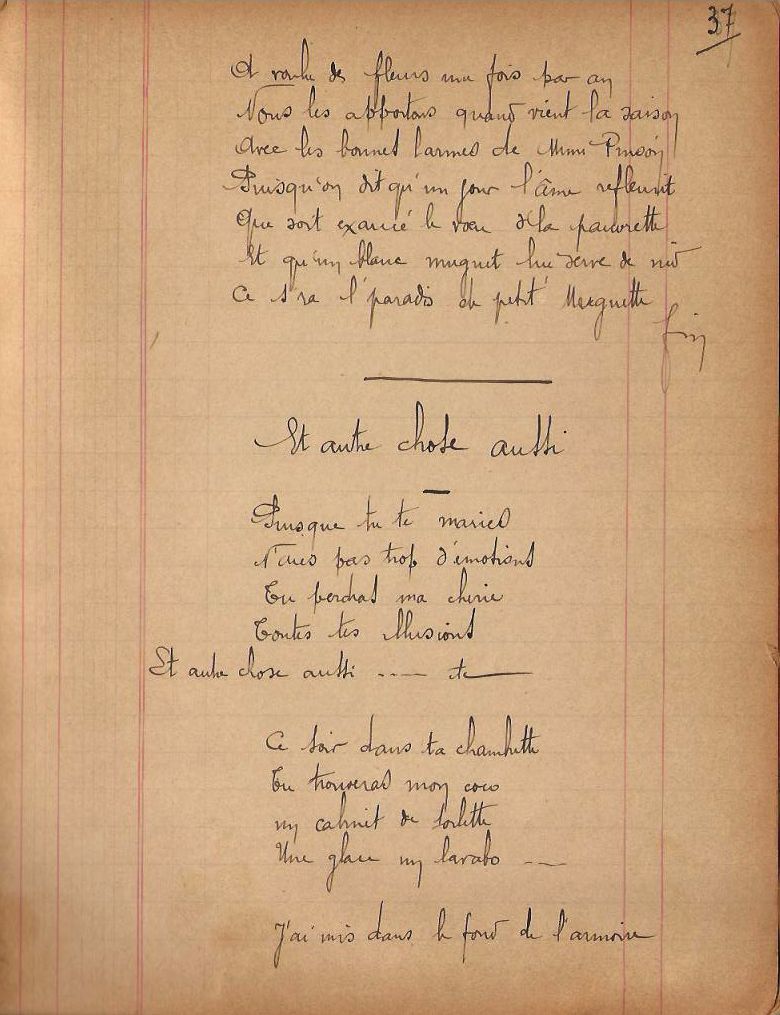 37
A voulu des fleurs une fois par an
Nous les apportons quand vient la saison
Avec les bonnes larmes de Mimi Pinson
Puisqu'on dit qu'un jour l'âme refleurit
Que soit exaucé le vœu d'la pauvrette
Et qu'un blanc muguet lui serve de nid
Ce s'ra l'paradis de petit' Marguette
fin
Et autre chose aussi
Puisque tu te maries
N'aies pas trop d'émotions
Tu perdras ma chérie
Toutes tes illusions
Et autre chose aussi ---- te
Ce soir dans ta chambrette
Tu trouveras mon coco
un cabinet de toilette
Une glace un lavabo ---
J'ai mis dans le fond de l'armoire